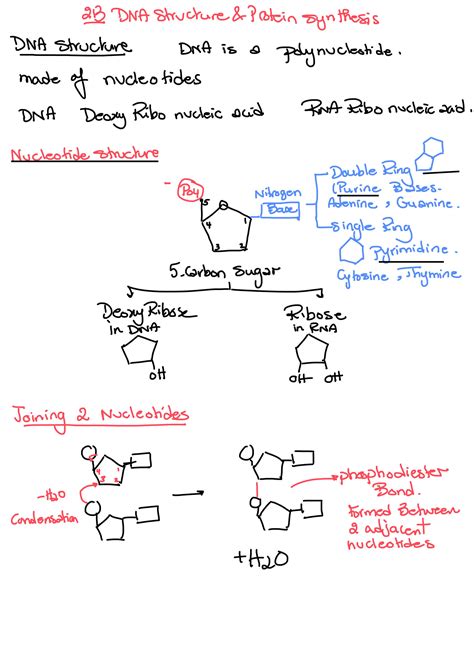 2B DNA Structure & Protein Synthesis
DNA Structure DNA is a polynucleotide.
made of nucleotides
DNA Deoxy Ribo nucleic acid RNA Ribo nucleic acid.
Nucleotide Structure
- Po4
5
4
3
2
1
Nitrogen
Base
Double Ring
(Purine Bases-
Adenine, Guanine.
Single Ring
Pyrimidine.
Cytosine, Thymine
5.Carbon Sugar
Deoxy Ribose
in DNA
OH
Ribose
in RNA
OH OH
Joining 2 Nucleotides
4 1
3 2
-H2O
Condensation
phosphodiester
Bond.
Formed Between
2 adjacent
nucleotides
+H2O